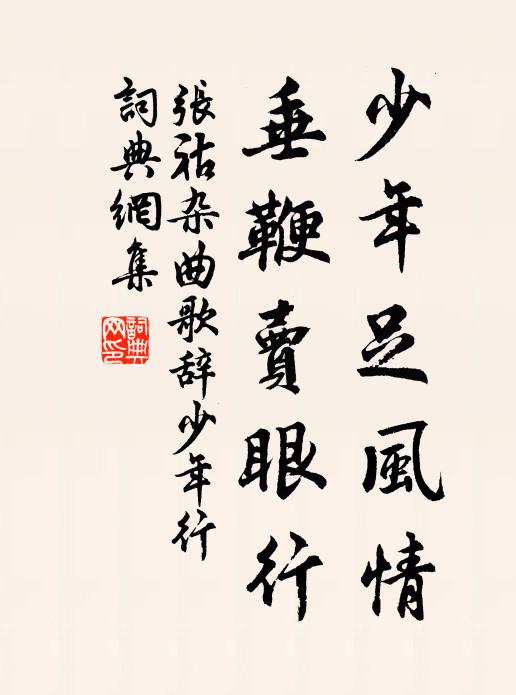 少年足風情
垂鞭賣眼行
張祜杂曲歌辞少年行
詞典網集
詞典网印